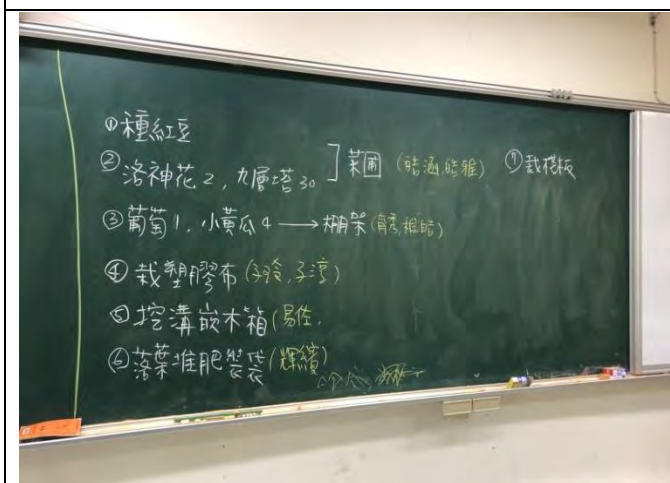 ①種紅豆
②洛神花2,九層塔30 ]菜圃 (皓涵,皓雅) ⑦裁樓板
③葡萄1,小黃瓜4→棚架(育秀,椎皓)
④裁塑膠布(子玲,子淳)
⑤挖溝嵌木箱(易佐,
⑥落葉堆肥裝袋(輝繽)